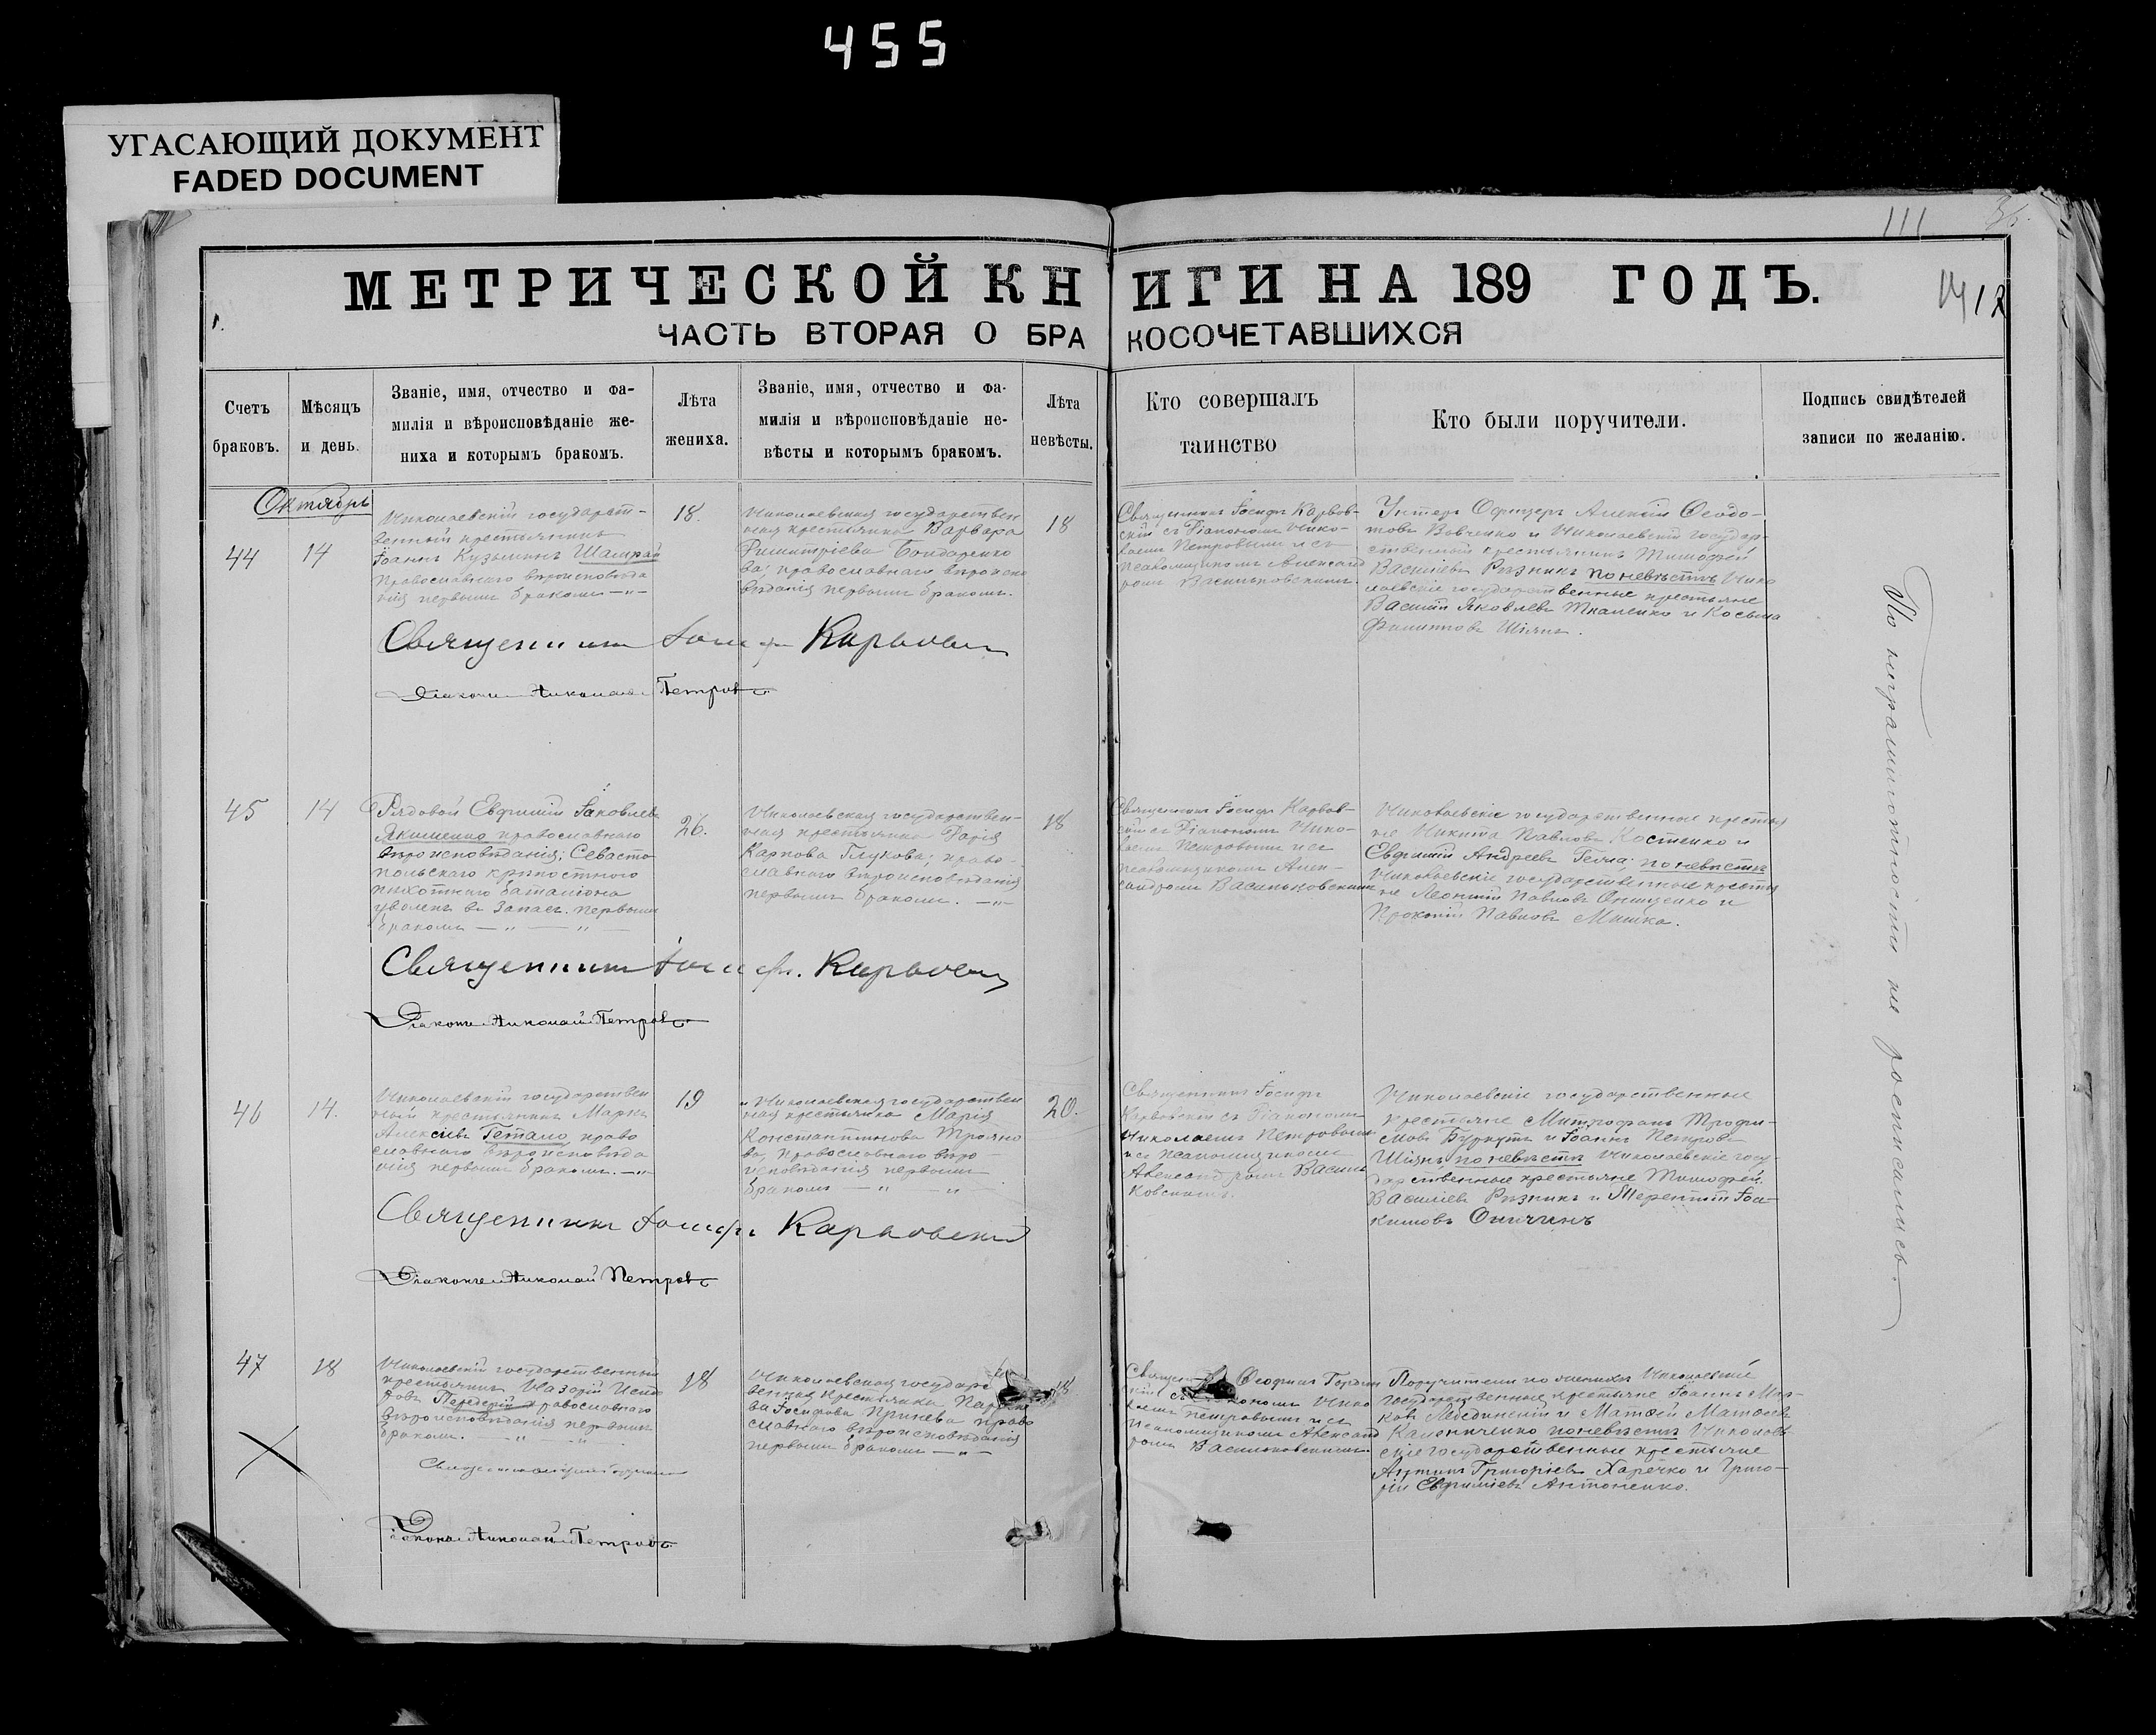 455
УГАСАЮЩИЙ ДОКУМЕНТ
FADED DOCUMENT
111
МЕТРИЧЕСКОЙ КНИГИ НА 189 ГОДЪ.
12
ЧАСТЬ ВТОРАЯ О БРАКОСОЧЕТАВШИХСЯ
Счетъ
браковъ.
Мѣсяцъ
и день.
Званіе, имя, отчество и фа-
милія и вѣроисповѣданіе же-
ниха и которымъ бракомъ.
Лѣта
жениха.
Званіе, имя, отчество и фа-
милія и вѣроисповѣданіе не-
вѣсты и которымъ бракомъ.
Лѣта
невѣсты.
Кто совершалъ
таинство
Кто были поручители.
Подпись свидѣтелей
записи по желанію.
Октябрь
44
14
Николаевскій государст-
венный крестьянинъ
Іоаннъ Кузьминъ Шамрай
Православнаго вѣроисповѣда
нія первымъ бракомъ
18.
Николаевская государствен
ная крестьянка Варвара
Димитріева Бондаренко
ва; православнаго вѣроиспо
вѣданія первымъ бракомъ.
18
Священникъ Іосифъ Карвов-
скій съ Діакономъ Нико-
лаемъ Петровымъ и съ
Псаломщикомъ Александ
ромъ Васильковскимъ.
Унтеръ Офицеръ Алексій Ѳеодо-
товъ Вовченко и Николаевскій государ-
ственный крестьянинъ Тимофей
Василіевъ Рѣзникъ по невѣстѣ Нико
лаевскіе государственные крестьяне
Василій Яковлевъ Ткаченко и Косьма
Филиповъ Шіянъ.
Священникъ Іосифъ Карвовскій
Діаконъ Николай Петровъ
45
14
Рядовой Евфимій Іаковлевъ
Якименко православнаго
вѣроисповѣданія; Севасто
польскаго крѣпостного
пѣхотнаго баталіона
уволенъ въ запасъ. первымъ
бракомъ
26.
Николаевская государствен-
ная крестьянка Дарія
Карпова Глухова; право-
славнаго вѣроисповѣданія
первымъ бракомъ.
18
Священникъ Іосифъ Карвов-
скій съ Діакономъ Нико-
лаемъ Петровымъ и съ
псаломщикомъ Алек-
сандромъ Васильковскимъ
Николаевскіе государственные крестья
не Никита Павловъ Костенко и
Евфимій Андреевъ Гелла; по невѣстѣ
Николаевскіе государственные крестья
не Леонтій Павловъ Онищенко и
Прокопій Павловъ Мишка.
Священникъ Іосифъ Карвовскій
Діаконъ Николай Петровъ
46
14.
Николаевскій государствен
ный крестьянинъ Маркъ
Алексіевъ Гетало право
славнаго вѣроисповѣда
нія первымъ бракомъ.
19
Николаевская государствен
ная крестьянка Марія
Константинова Трояно
ва, православнаго вѣро-
исповѣданія первымъ
бракомъ
20.
Священникъ Іосифъ
Карвовскій съ Діакономъ
Николаемъ Петровымъ
и съ Псаломщикомъ
Александромъ Василь
ковскимъ.
Николаевскіе государственные
крестьяне Митрофанъ Трофи-
мовъ Буркутъ и Іоаннъ Петровъ
Шіянъ по невѣстѣ Николаевскіе госу-
дарственные крестьяне Тимофей
Василіевъ Рѣзникъ и Терентій Іоа-
кимовъ Оничинъ
Священникъ Іосифъ Карвовскій
Діаконъ Николай Петровъ
47
18
Николаевскій государственный
крестьянинъ Назарій
Передерій православнаго
вѣроисповѣданія первымъ
бракомъ.
18
Николаевская государст
венная крестьянка
Іосифова Принева право
славнаго вѣроисповѣданія
первымъ бракомъ
18
Ѳеофилъ
Нико
лаемъ Петровымъ и съ
Псаломщикомъ Александ
ромъ Васильковскимъ.
Поручители по женихѣ Николаевскіе
государственные крестьяне Іоаннъ Мар-
ковъ Лебединскій и Матѳей Матѳеевъ
Калениченко по невѣстѣ Николаев
скіе государственные крестьяне
Антипъ Григоріевъ Харечко и Григо-
рій Евфиміевъ Антоненко.
Діаконъ Николай Петровъ
По неграмотности не росписались.